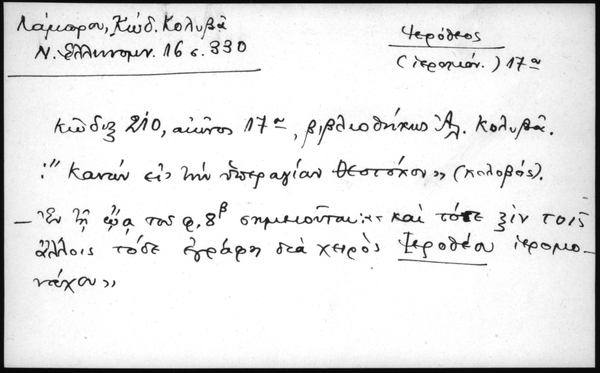 Λάμπρου, Κώδ. Κολυβᾶ
Ν. Ἑλληνομν. 16 σ. 330
Ἱερόθεος
(ἱερομόν.) 17ᵒˢ
Κῶδιξ 210, αἰῶνος 17ᵒˢ, βιβλιοθήκης Ἀλ. Κολυβᾶ.
:" Κανὼν εἰς τὴν ὑπεραγίαν Θεοτόκον» (κολοβός).
– Ἐν τῇ ᾤᾳ τοῦ φ. 8β σημειοῦται: «καὶ τόδε ξὺν τοῖς
ἄλλοις τόδε ἐγράφη διὰ χειρὸς Ἱεροθέου ἱερομο-
νάχου»